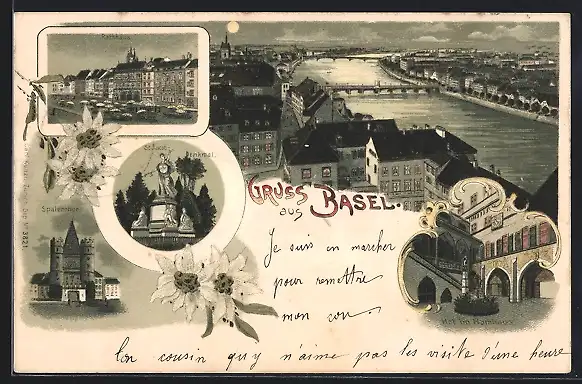 Rathhaus
St. Jacob
Denkmal.
GRUSS
aus BASEL.
Spalenthor
3821
Hof im Rathhaus
Je suis en marcher
pour remettre
mon cou.
Ton cousin qu'y n'aime pas les visite d'une heure